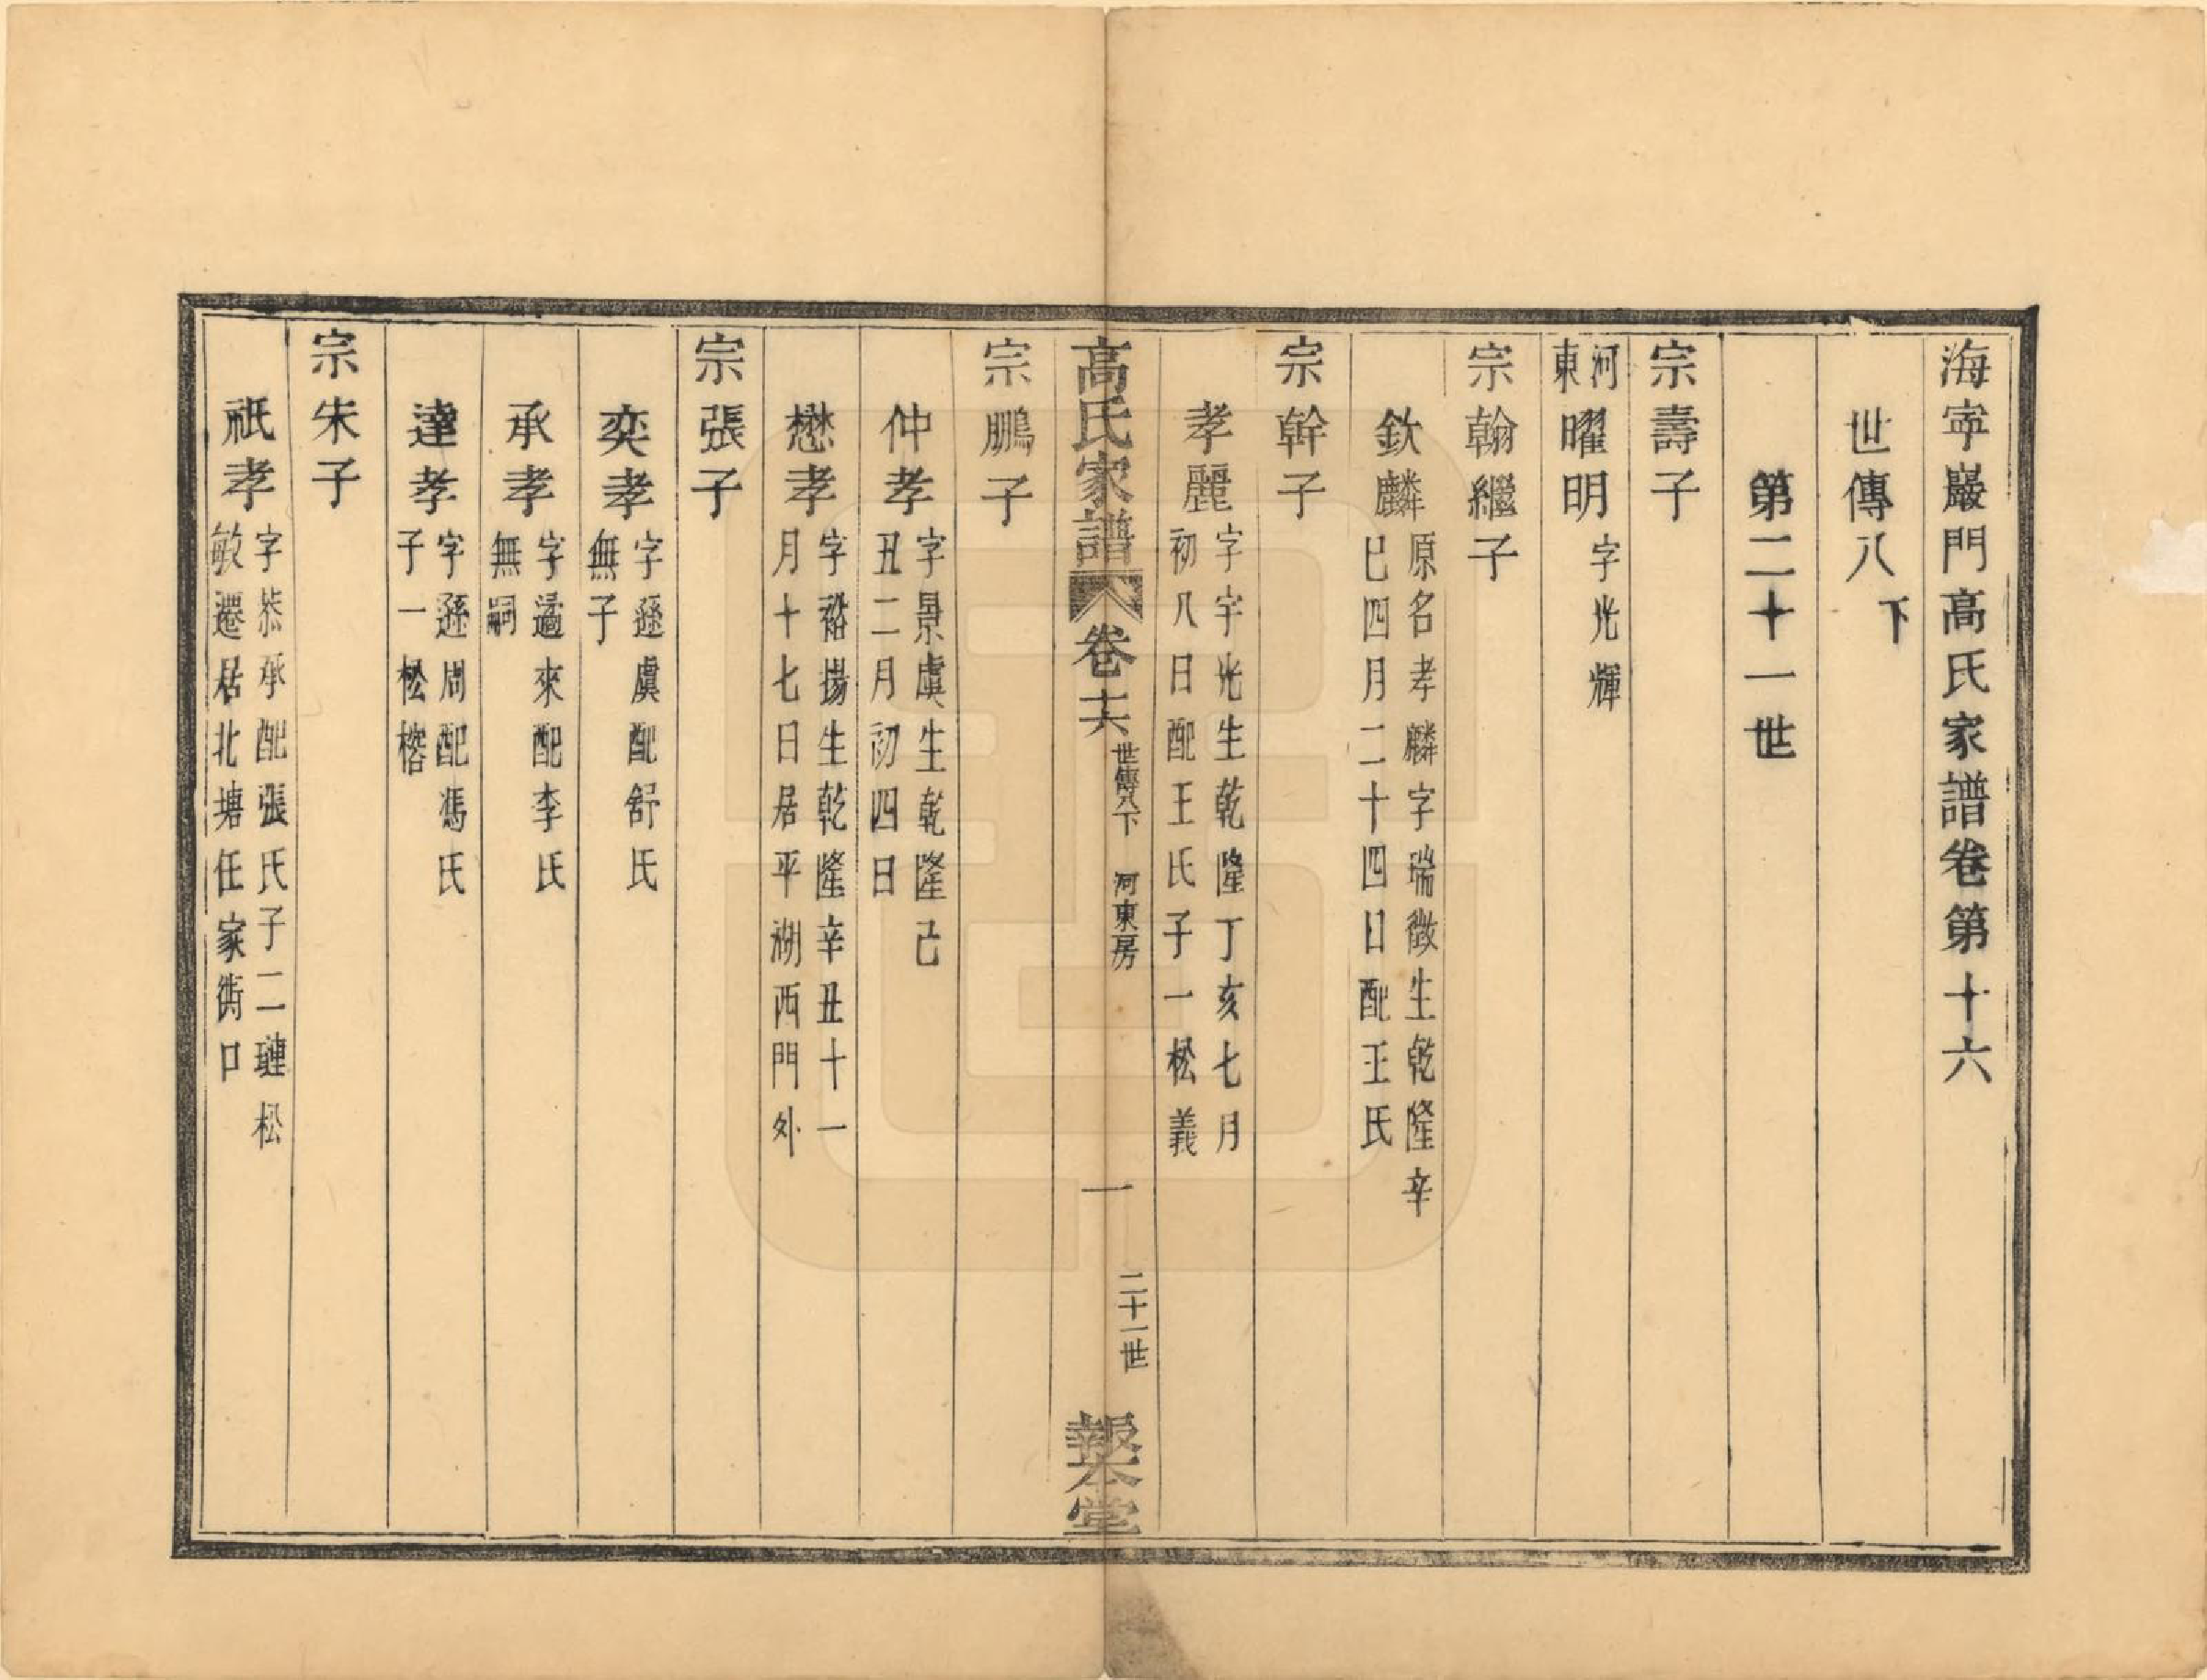 海寧巖門高氏家譜卷第十六
世傳八下
第二十一世
宗壽子
河東曜明字光輝
宗翰繼子
欽麟原名孝麟字瑞徵生乾隆辛
巳四月二十四日配王氏
宗幹子
孝麗字宇光生乾隆丁亥七月
初八日配王氏子一松義
高氏家譜卷十六世傳八下 河東房 一 二十一世 報本堂
宗鵬子
仲孝字景虞生乾隆己
丑二月初四日
懋孝字裕揚生乾隆辛丑十一
月十七日居平湖西門外
宗張子
奕孝字遜虞配舒氏
無子
承孝字遹來配李氏
無嗣
達孝字遜周配馮氏
子一松榕
宗朱子
祇孝字恭承配張氏子二璉松
敏遷居北塘任家衖口